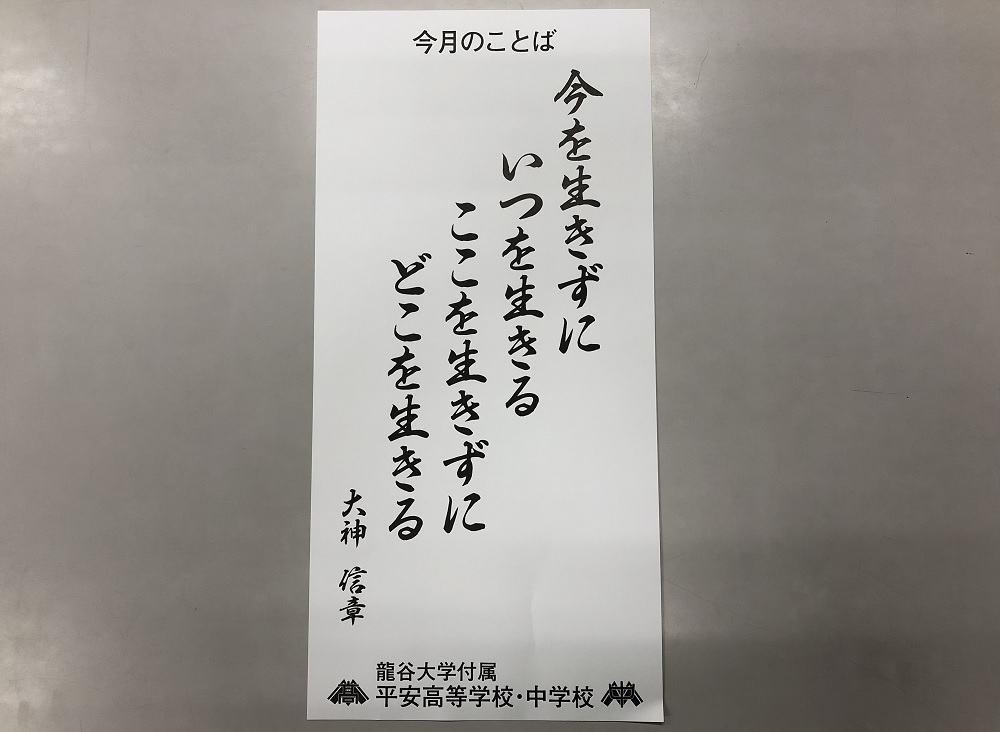 今月のことば
今を生きずに
いつを生きる
ここを生きずに
どこを生きる
大神 信章
龍谷大学付属
平安高等学校・中学校